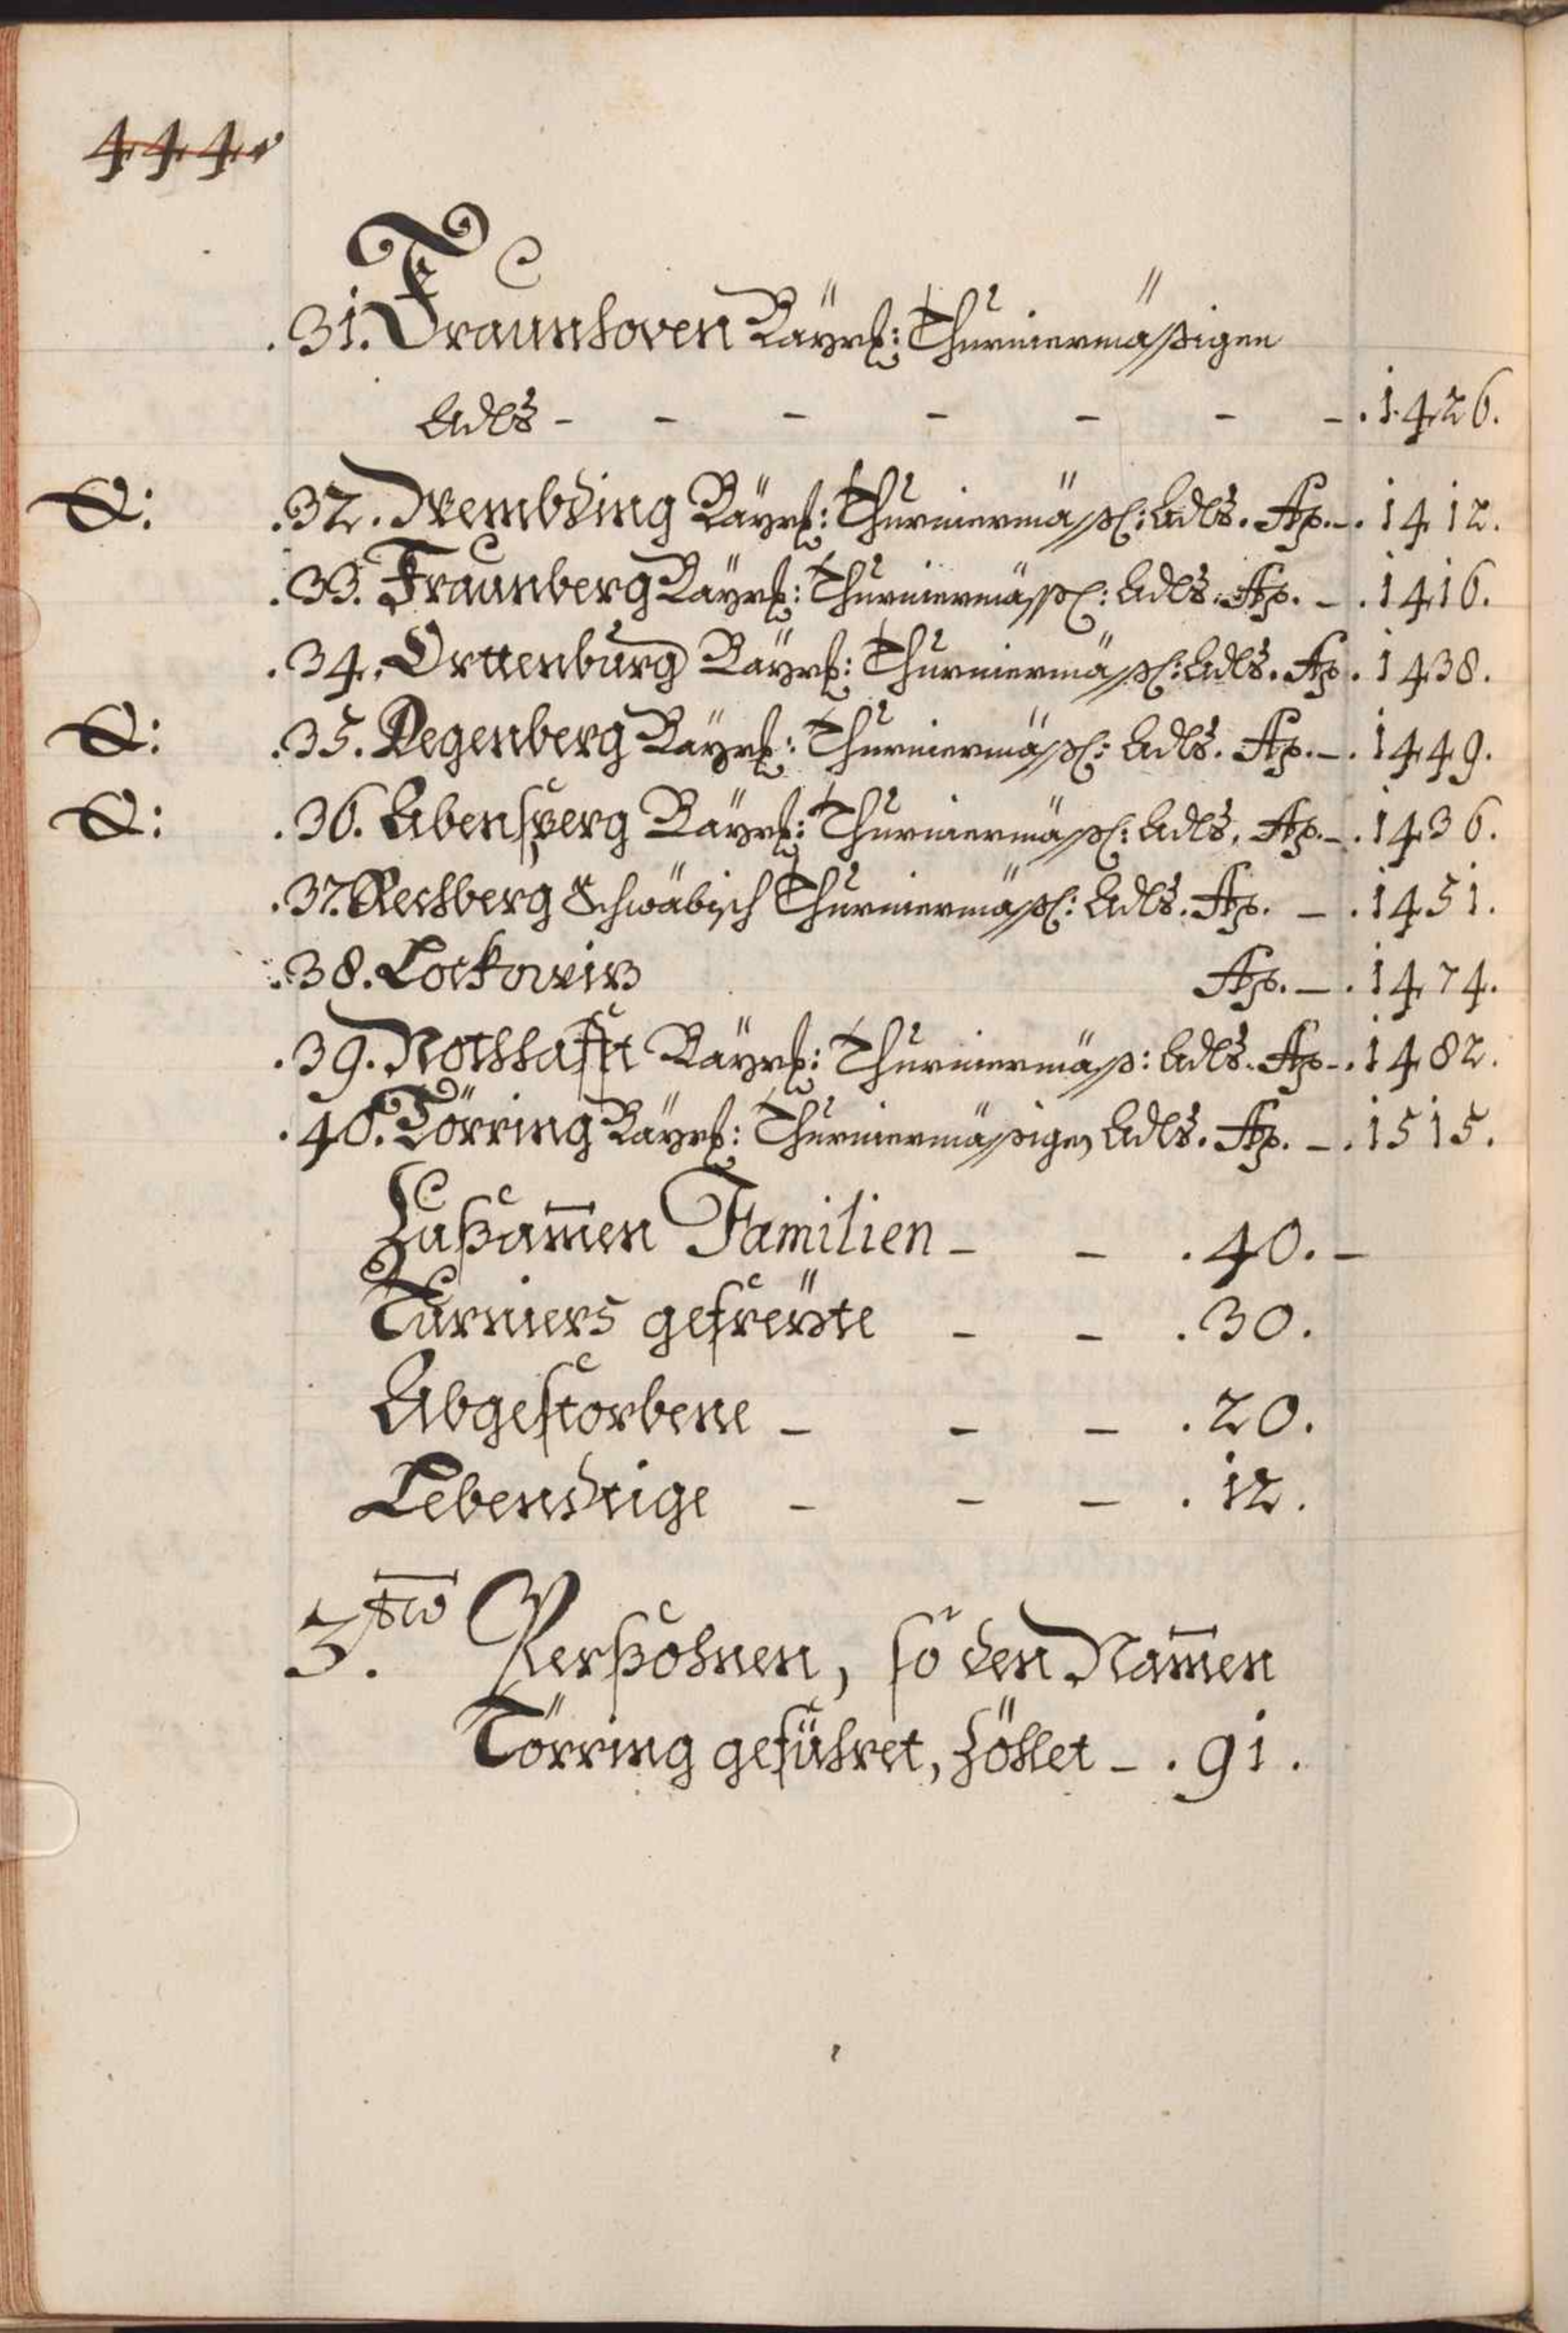 444.
31. Fraunhoven Bayris: Thurniermäßigen
Adls - - - - - - - . 1426.
32. Wembding Bayris: Thurniermäßl: Adls. Ao. - . 1412.
33. Fraunberg Bayris: Thurniermäßl: Adls. Ao. - . 1416.
34. Orttenburg Bayris: Thurniermäßl: Adls. Ao . 1438.
35. Degenberg Bayris: Thurniermäßl: Adls. Ao. - . 1449.
36. Abensperg Bayris: Thurniermäßl: Adls. Ao. - . 1436.
37. Rechberg Schwäbisch Thurniermäßl: Adls. Ao. - . 1451.
38. Lockowiz Ao. - . 1474.
39. Nothhafft Bayris: Thurniermäß: Adls. Ao - . 1482.
40. Törring Bayris: Thurniermäßigen Adls. Ao. - . 1515.
Zusam̄en Familien - - . 40. -
Turniers gefreyte - - . 30.
Abgestorbene - - - . 20.
Lebendtige - - - . 12.
3.tio Persohnen, so den Nam̄en
Törring geführet, zöhlet - . 91.